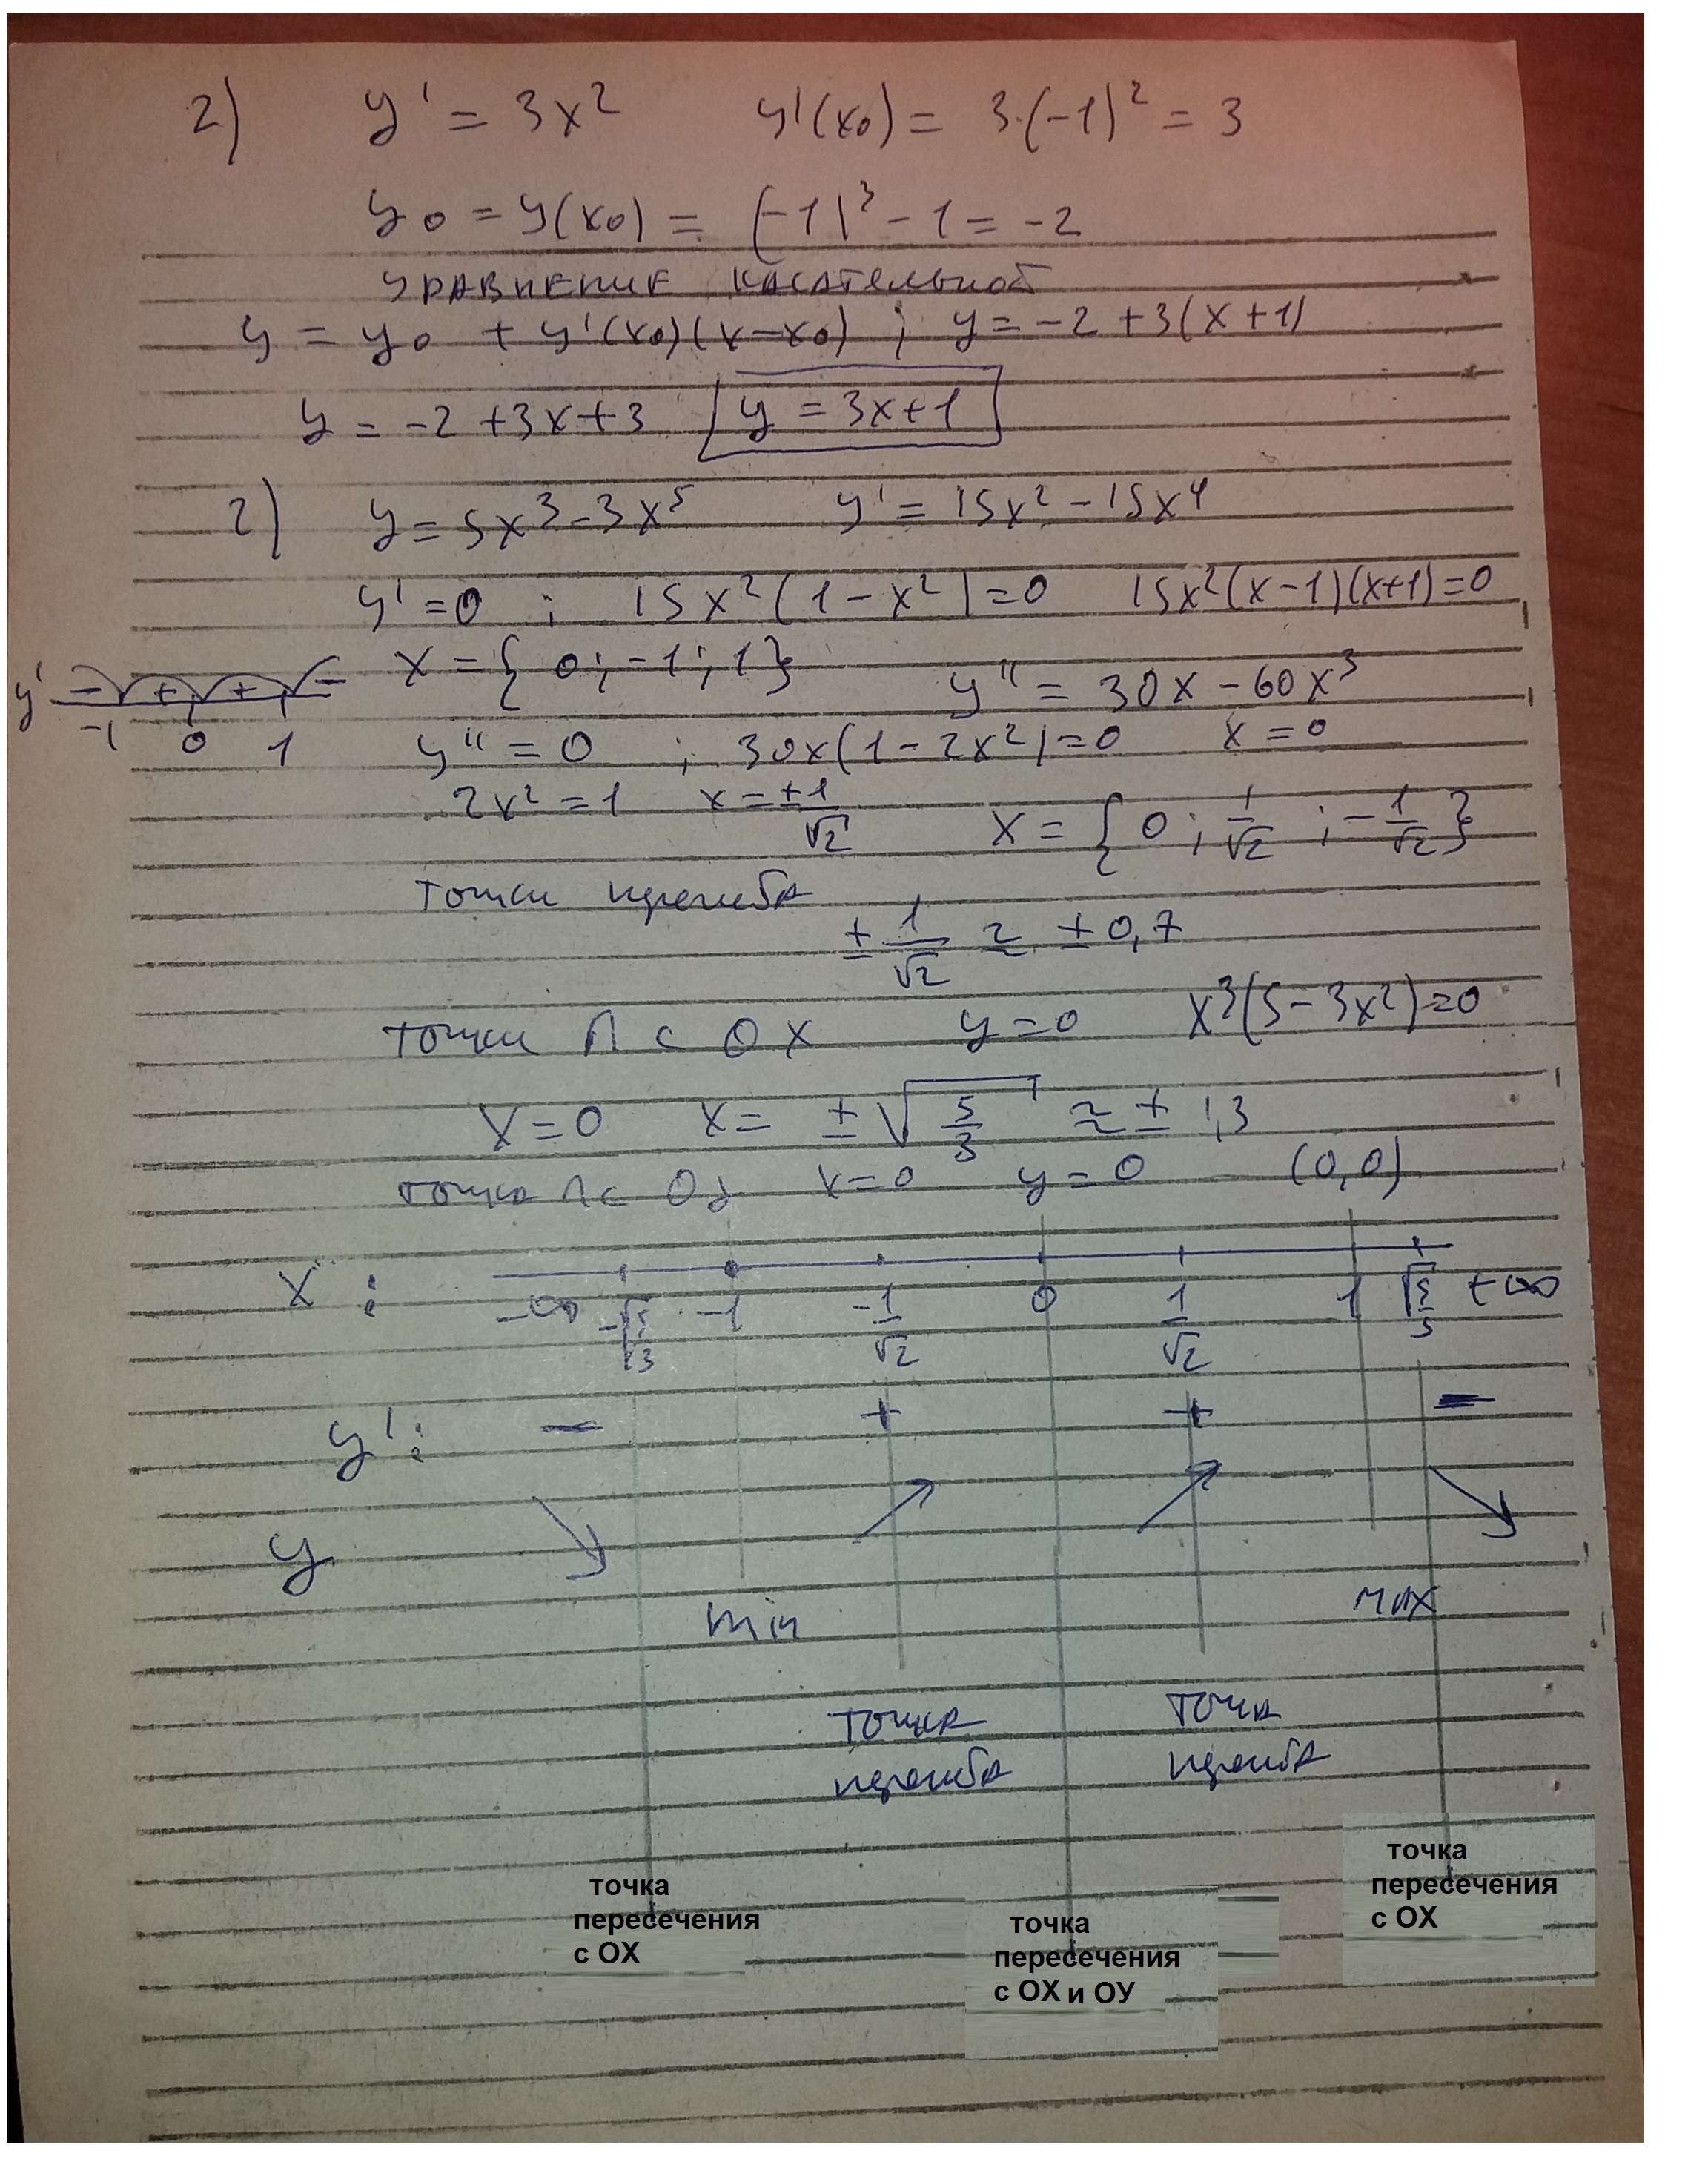 2) y' = 3x² y'(x₀) = 3·(-1)² = 3
y₀ = y(x₀) = (-1)³ - 1 = -2
УРАВНЕНИЕ КАСАТЕЛЬНОЙ
y = y₀ + y'(x₀)(x-x₀) ; y = -2 + 3(x+1)
y = -2 + 3x + 3 y = 3x+1
2) y = 5x³ - 3x⁵ y' = 15x² - 15x⁴
y' = 0 ; 15x²(1-x²) = 0 15x²(x-1)(x+1)=0
x = { 0 ; -1 ; 1 }
y' - + + -
-1 0 1
y'' = 30x - 60x³
y'' = 0 ; 30x(1-2x²) = 0 x = 0
2x² = 1 x = ±1/√2 x = { 0 ; 1/√2 ; -1/√2 }
точки перегиба
± 1/√2 ≈ ±0,7
точки ∩ с OX y = 0 x³(5-3x²)=0
x = 0 x = ±√(5/3) ≈ ± 1,3
точка ∩ с Oy x=0 y = 0 (0,0)
x : -∞ -√(5/3) -1 -1/√2 0 1/√2 1 √(5/3) +∞
y' : - + + -
y
min max
точка точка
перегиба перегиба
точка
пересечения
с ОХ
точка
пересечения
с ОХ и ОУ
точка
пересечения
с ОХ